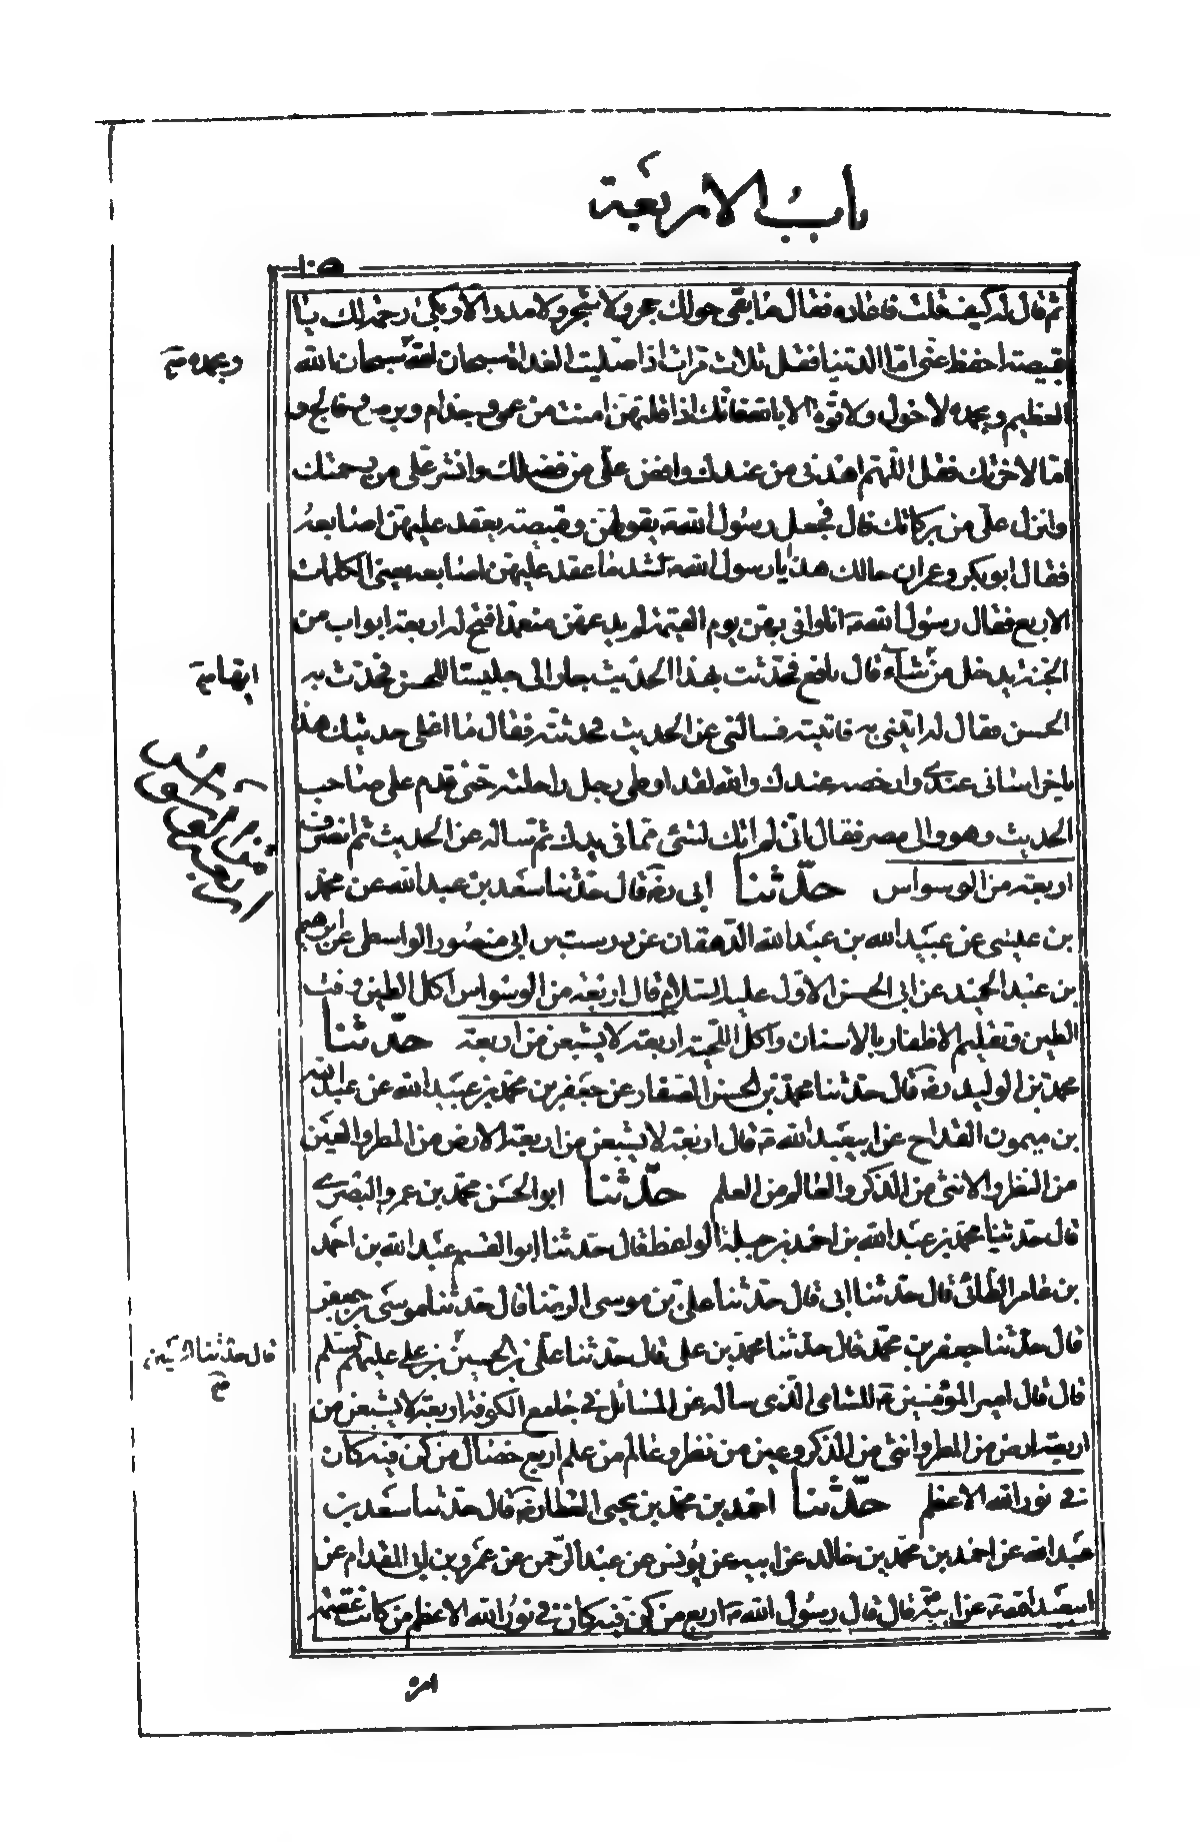 باب الاربعة
١٠٥
ثم قال له كيف قلت فاعاده فقال ما بقى حولك حجر ولا شجر ولا مدر الا وبكى رحمة لك يا
قبيصة احفظ عنى اما الدنيا فقل ثلاث مرات اذا صليت الغداة سبحان الله سبحان الله
وبحمده
العظيم وبحمده لا حول ولا قوة الا بالله فانك اذا قلتهن امنت من عمى وجذام وبرص وفالج و
اما لاخرتك فقل اللهم اهدنى من عندك وافض على من فضلك وانشر على من رحمتك
وانزل على من بركاتك قال فجعل رسول الله يقولهن وقبيصة يعقد عليهن اصابعه
فقال ابو بكر وعمر ان خالك هذا يا رسول الله لشد ما عقد عليهن اصابعه يعنى الكلمات
الاربع فقال رسول الله ان وافى بهن يوم القيمة لم يدعهن متعمدا فتح له اربعة ابواب من
الجنة يدخل من شاء قال نافع فحدثت بهذا الحديث جارا لى جليسا للحسن فحدث به
ايها
الحسن فقال له ايتنى به فاتيته فسالنى عن الحديث فحدثته فقال ما اغلى حديثك هذا
يا خراسانى عندى وارخصه عندك والله لقد اوطى رجل راحلته حتى قدم على صاحب
الحديث وهو والى مصر فقال انى لم اتك لشئ مما فى يديك ثم ساله عن الحديث ثم انصرف
اربعة من الوسواس
اربعة من الوسواس حدثنا ابى ره قال حدثنا سعد بن عبد الله عن محمد
بن عيسى عن عبيد الله بن عبد الله الدهقان عن درست بن ابى منصور الواسطى عن ابرهيم
بن عبد الحميد عن ابى الحسن الاول عليه السلام قال اربعة من الوسواس اكل الطين وفت
الطين وتقليم الاظفار بالاسنان واكل اللحية اربعة لا يشبعن من اربعة حدثنا
محمد بن الوليد ره قال حدثنا محمد بن الحسن الصفار عن جعفر بن محمد بن عبيد الله عن عبد الله
بن ميمون القداح عن ابيعبد الله قال اربعة لا يشبعن من اربعة الارض من المطر والعين
من النظر والانثى من الذكر والعالم من العلم حدثنا ابو الحسن محمد بن عمرو البصرى
قال حدثنا محمد بن عبد الله بن احمد بن جبلة الواعظ قال حدثنا ابو القسم عبد الله بن احمد
بن عامر الطائى قال حدثنا ابى قال حدثنا على بن موسى الرضا قال حدثنا موسى بن جعفر
قال حدثنا جعفر بن محمد قال حدثنا محمد بن على قال حدثنا على بن الحسين بن على عليهم السلم
قال حدثنا الحسين
قال قال امير المؤمنين للشامى الذى ساله عن المسائل فى جامع الكوفة اربعة لا يشبعن من
اربعة ارض من المطر وانثى من الذكر وعين من نظر وعالم من علم اربع خصال من كن فيه كان
فى نور الله الاعظم حدثنا احمد بن محمد بن يحيى العطار ره قال حدثنا سعد بن
عبد الله عن احمد بن محمد بن خالد عن ابيه عن يونس عن عبد الرحمن عن عمرو بن ابى المقدام عن
ابيعبد الله عن ابيه قال قال رسول الله اربع من كن فيه كان فى نور الله الاعظم من كانت عصمة
امره